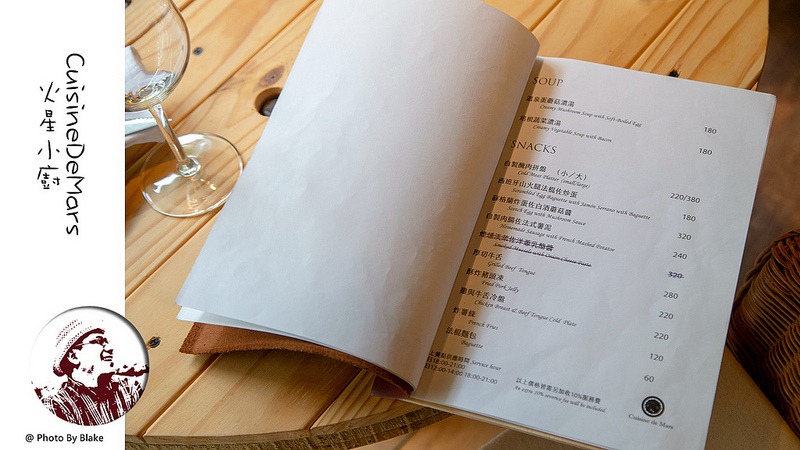 CuisineDeMars
火星小廚
@ Photo By Blake
SOUP
溫泉蛋蘑菇濃湯
Creamy Mushroom Soup with Soft-Boiled Egg
180
培根蔬菜濃湯
Creamy Vegetable Soup with Bacon
180
SNACKS
自製醃肉拼盤 (小/大)
Cold Meat Platter (small/large)
220/380
西班牙山火腿法棍佐炒蛋
Scrambled Egg Baguette with Jamón Serrano with Baguette
180
蘇格蘭炸蛋佐白酒蘑菇醬
Scotch Egg with Mushroom Sauce
320
自製肉腸佐法式薯泥
Homemade Sausage with French Mashed Potatoe
240
Smoked Mussels with Onion Cheese Paste
320
厚切牛舌
Grilled Beef Tongue
280
酥炸豬頭凍
Fried Pork Jelly
220
雞與牛舌冷盤
Chicken Breast & Beef Tongue Cold Plate
220
炸薯條
French Fries
120
法棍麵包
Baguette
60
上餐點供應時間 Service hour
日18:00-21:00
日12:00-14:00 18:00-21:00
以上價格皆需另加收10%服務費
An extra 10% service fee will be included.
Cuisine de Mars